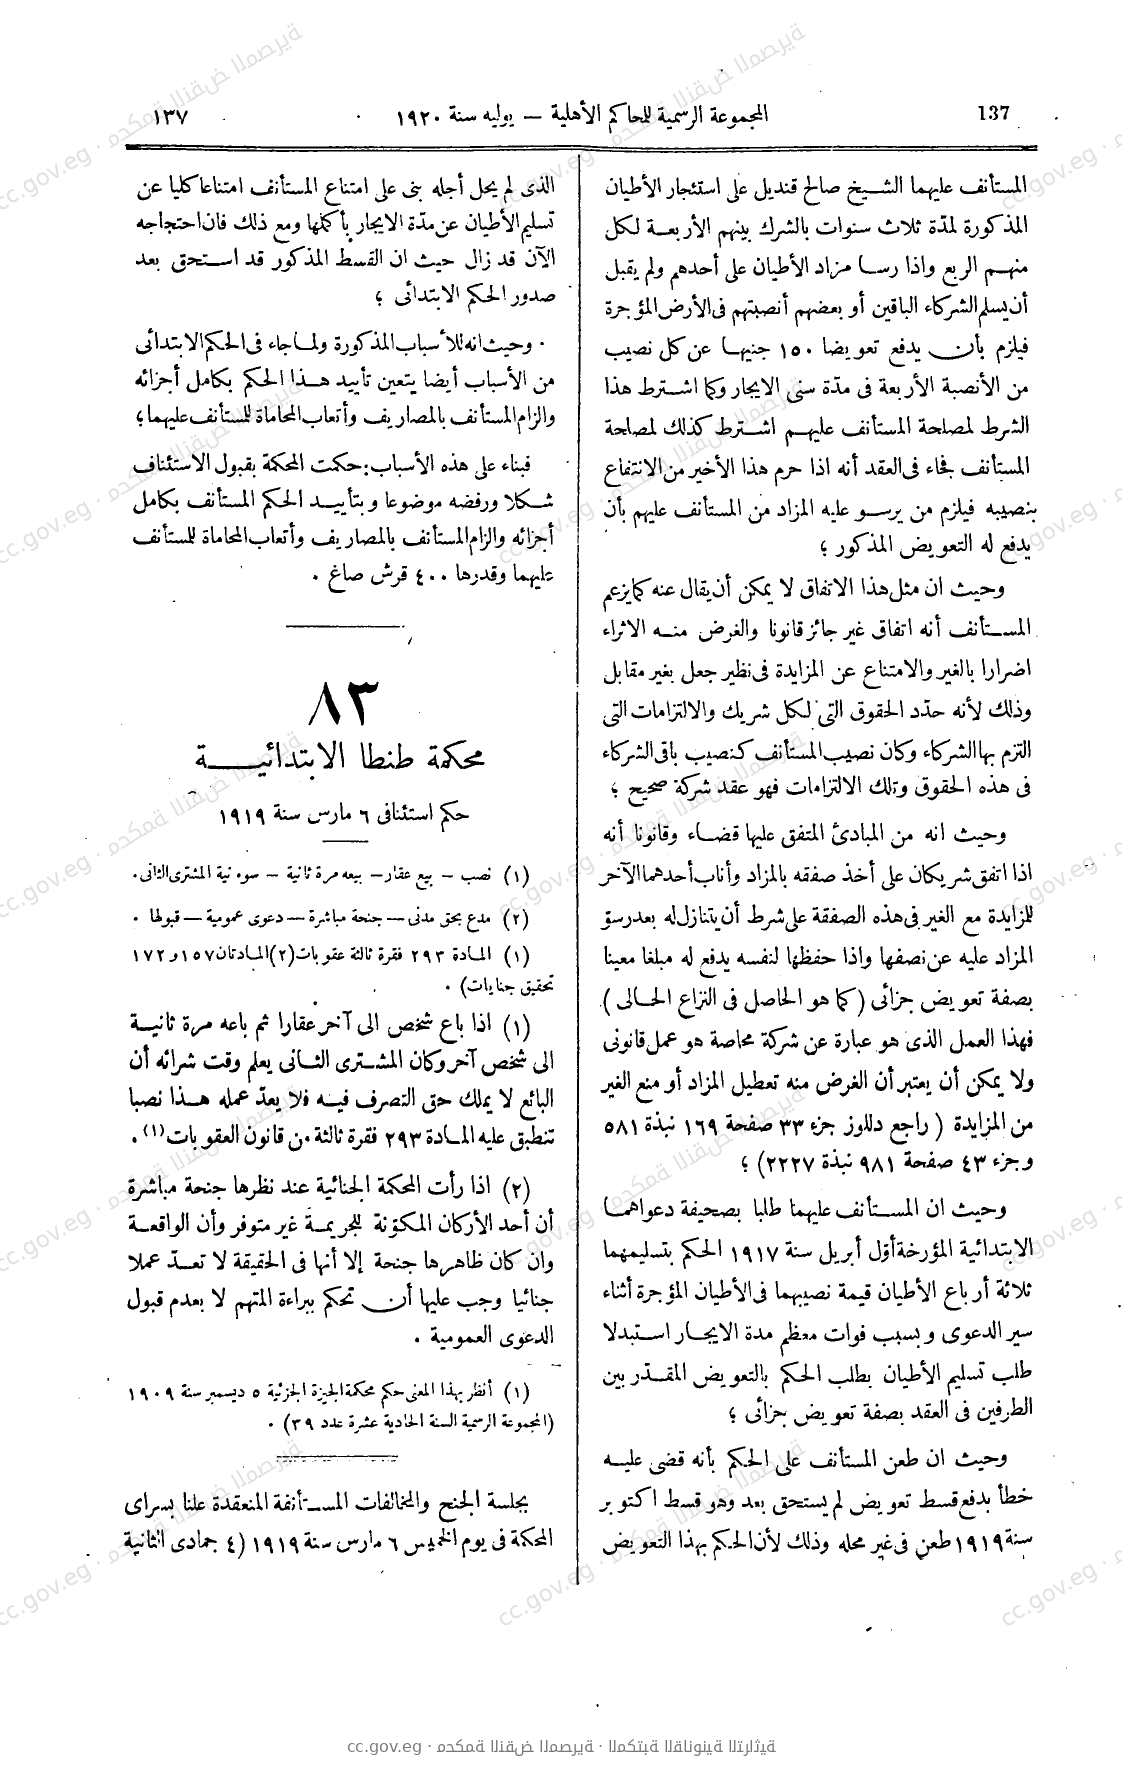 137
المجموعة الرسمية للمحاكم الأهلية — يوليه سنة ١٩٢٠
١٣٧
المستأنف عليهما الشيخ صالح قنديل على استئجار الأطيان
المذكورة لمدّة ثلاث سنوات بالشرك بينهم الأربعة لكل
منهم الربع واذا رسا مزاد الأطيان على أحدهم ولم يقبل
أن يسلم الشركاء الباقين أو بعضهم أنصبتهم فى الأرض المؤجرة
فيلزم بأن يدفع تعويضا ١٥٠ جنيها عن كل نصيب
من الأنصبة الأربعة فى مدّة سنى الايجار وكما اشترط هذا
الشرط لمصلحة المستأنف عليهم اشترط كذلك لمصلحة
المستأنف فجاء فى العقد أنه اذا حرم هذا الأخير من الانتفاع
بنصيبه فيلزم من يرسو عليه المزاد من المستأنف عليهم بأن
يدفع له التعويض المذكور ؛
وحيث ان مثل هذا الاتفاق لا يمكن أن يقال عنه كما يزعم
المستأنف أنه اتفاق غير جائز قانونا والغرض منه الاثراء
اضرارا بالغير والامتناع عن المزايدة فى نظير جعل بغير مقابل
وذلك لأنه حدّد الحقوق التى لكل شريك والالتزامات التى
التزم بها الشركاء وكان نصيب المستأنف كنصيب باقى الشركاء
فى هذه الحقوق وتلك الالتزامات فهو عقد شركة صحيح ؛
وحيث انه من المبادئ المتفق عليها قضاء وقانونا أنه
اذا اتفق شريكان على أخذ صفقه بالمزاد وأناب أحدهما الآخر
للمزايدة مع الغير فى هذه الصفقة على شرط أن يتنازل له بعد رسوّ
المزاد عليه عن نصفها واذا حفظها لنفسه يدفع له مبلغا معينا
بصفة تعويض جزائى (كما هو الحاصل فى النزاع الحالى)
فهذا العمل الذى هو عبارة عن شركة محاصة هو عمل قانونى
ولا يمكن أن يعتبر أن الغرض منه تعطيل المزاد أو منع الغير
من المزايدة (راجع دللوز جزء ٣٣ صفحة ١٦٩ نبذة ٥٨١
وجزء ٤٣ صفحة ٩٨١ نبذة ٢٢٢٧) ؛
وحيث ان المستأنف عليهما طلبا بصحيفة دعواهما
الابتدائية المؤرخة أوّل أبريل سنة ١٩١٧ الحكم بتسليمهما
ثلاثة أرباع الأطيان قيمة نصيبهما فى الأطيان المؤجرة أثناء
سير الدعوى وبسبب فوات معظم مدة الايجار استبدلا
طلب تسليم الأطيان بطلب الحكم بالتعويض المقدّر بين
الطرفين فى العقد بصفة تعويض جزائى ؛
وحيث ان طعن المستأنف على الحكم بأنه قضى عليه
خطأ بدفع قسط تعويض لم يستحق بعد وهو قسط اكتوبر
سنة ١٩١٩ طعن فى غير محله وذلك لأن الحكم بهذا التعويض
الذى لم يحل أجله بنى على امتناع المستأنف امتناعا كليا عن
تسليم الأطيان عن مدّة الايجار بأكملها ومع ذلك فان احتجاجه
الآن قد زال حيث ان القسط المذكور قد استحق بعد
صدور الحكم الابتدائى ؛
وحيث انه للأسباب المذكورة ولما جاء فى الحكم الابتدائى
من الأسباب أيضا يتعين تأييد هذا الحكم بكامل أجزائه
والزام المستأنف بالمصاريف وأتعاب المحاماة للمستأنف عليهما ؛
فبناء على هذه الأسباب : حكمت المحكمة بقبول الاستئناف
شكلا ورفضه موضوعا وبتأييد الحكم المستأنف بكامل
أجزائه والزام المستأنف بالمصاريف وأتعاب المحاماة للمستأنف
عليهما وقدرها ٤٠٠ قرش صاغ .
٨٣
محكمة طنطا الابتدائية
حكم استئنافى ٦ مارس سنة ١٩١٩
(١) نصب – بيع عقار – بيعه مرة ثانية – سوء نية المشترى الثانى .
(٢) مدع بحق مدنى – جنحة مباشرة – دعوى عمومية – قبولها .
(١) المادة ٢٩٣ فقرة ثالثة عقوبات (٢) المادتان ١٥٧ و ١٧٢
تحقيق جنايات) .
(١) اذا باع شخص الى آخر عقارا ثم باعه مرة ثانية
الى شخص آخر وكان المشترى الثانى يعلم وقت شرائه أن
البائع لا يملك حق التصرف فيه فلا يعدّ عمله هذا نصبا
تنطبق عليه المادة ٢٩٣ فقرة ثالثة من قانون العقوبات(١) .
(٢) اذا رأت المحكمة الجنائية عند نظرها جنحة مباشرة
أن أحد الأركان المكوّنة للجريمة غير متوفر وأن الواقعة
وان كان ظاهرها جنحة إلا أنها فى الحقيقة لا تعدّ عملا
جنائيا وجب عليها أن تحكم ببراءة المتهم لا بعدم قبول
الدعوى العمومية .
(١) أنظر بهذا المعنى حكم محكمة الجيزة الجزئية ٥ ديسمبر سنة ١٩٠٩
(المجموعة الرسمية السنة الحادية عشرة عدد ٣٩) .
بجلسة الجنح والمخالفات المستأنفة المنعقدة علنا بسراى
المحكمة فى يوم الخميس ٦ مارس سنة ١٩١٩ (٤ جمادى الثانية
cc.gov.eg · محكمة النقض المصرية · المكتبة القانونية التراثية